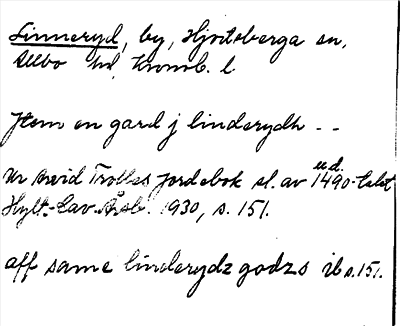 Linneryd, by, Hjortsberga sn,
Allbo hd, Kronob. l.
Item en gard j linderydh - -
Ur Arvid Trolles jordebok sl. av 1490-talet
u.d.
Hylt.-Cav. Årsb. 1930, s. 151.
aff same linderydz godzs ib s. 151.